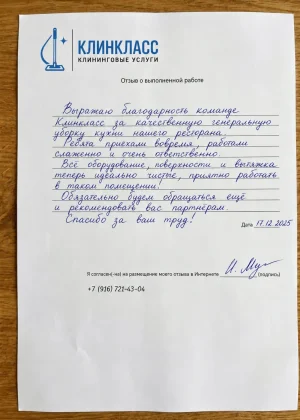 КЛИНКЛАСС
КЛИНИНГОВЫЕ УСЛУГИ
Отзыв о выполненной работе
Выражаю благодарность команде
Клинкласс за качественную генеральную
уборку кухни нашего ресторана.
Ребята приехали вовремя, работали
слаженно и очень ответственно.
Всё оборудование, поверхности и вытяжка
теперь идеально чистые, приятно работать
в таком помещении!
Обязательно будем обращаться ещё
и рекомендовать вас партнёрам.
Спасибо за ваш труд!
Дата 17.12.2025
Я согласен(-на) на размещение моего отзыва в Интернете (подпись)
+7 (916) 721-43-04